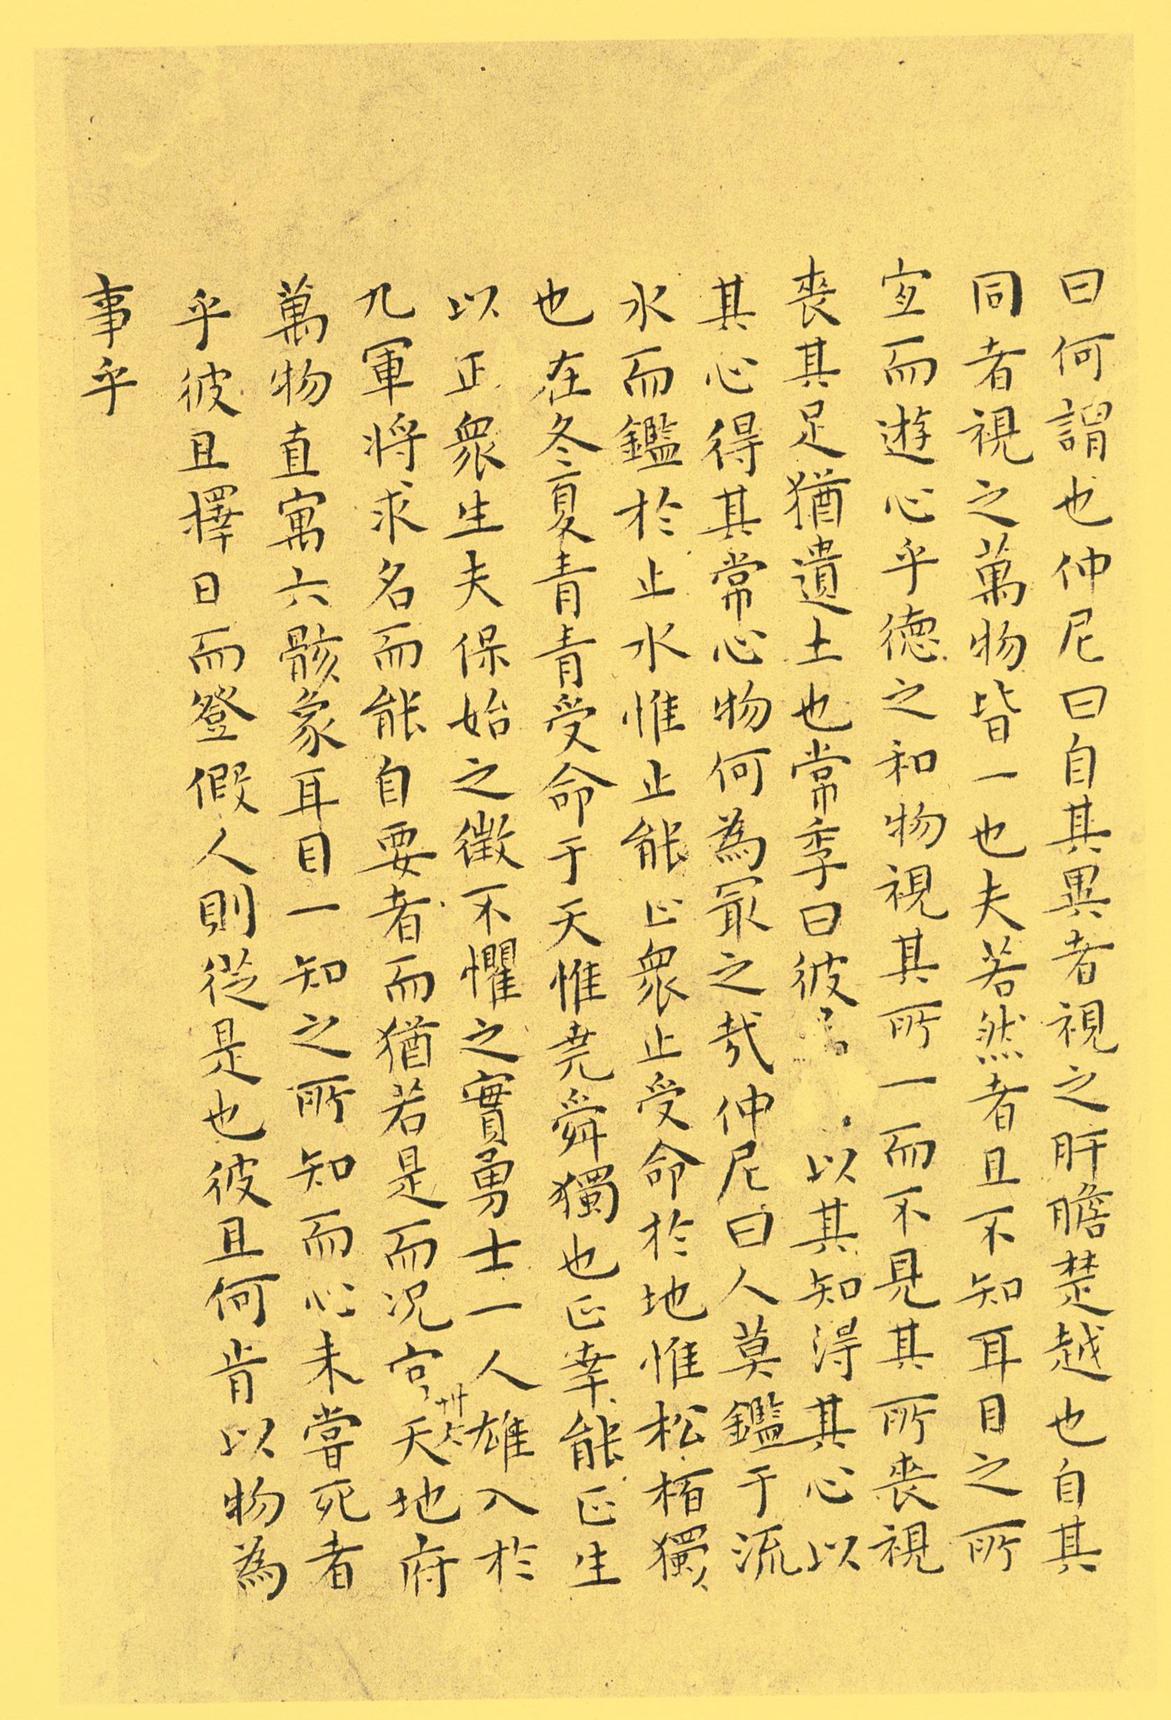 曰何謂也仲尼曰自其異者視之肝膽楚越也自其
同者視之萬物皆一也夫若然者且不知耳目之所
宜而遊心乎德之和物視其所一而不見其所喪視
喪其足猶遺土也常季曰彼以其知得其心以
其心得其常心物何為冣之哉仲尼曰人莫鑑于流
水而鑑於止水惟止能止衆止受命於地惟松栢獨
也在冬夏青青受命于天惟堯舜獨也正幸能正生
以正衆生夫保始之徵不懼之實勇士一人雄入於
九軍將求名而能自要者而猶若是而况官天地府
萬物直寓六骸象耳目一知之所知而心未嘗死者
乎彼且擇日而登假人則從是也彼且何肯以物為
事乎